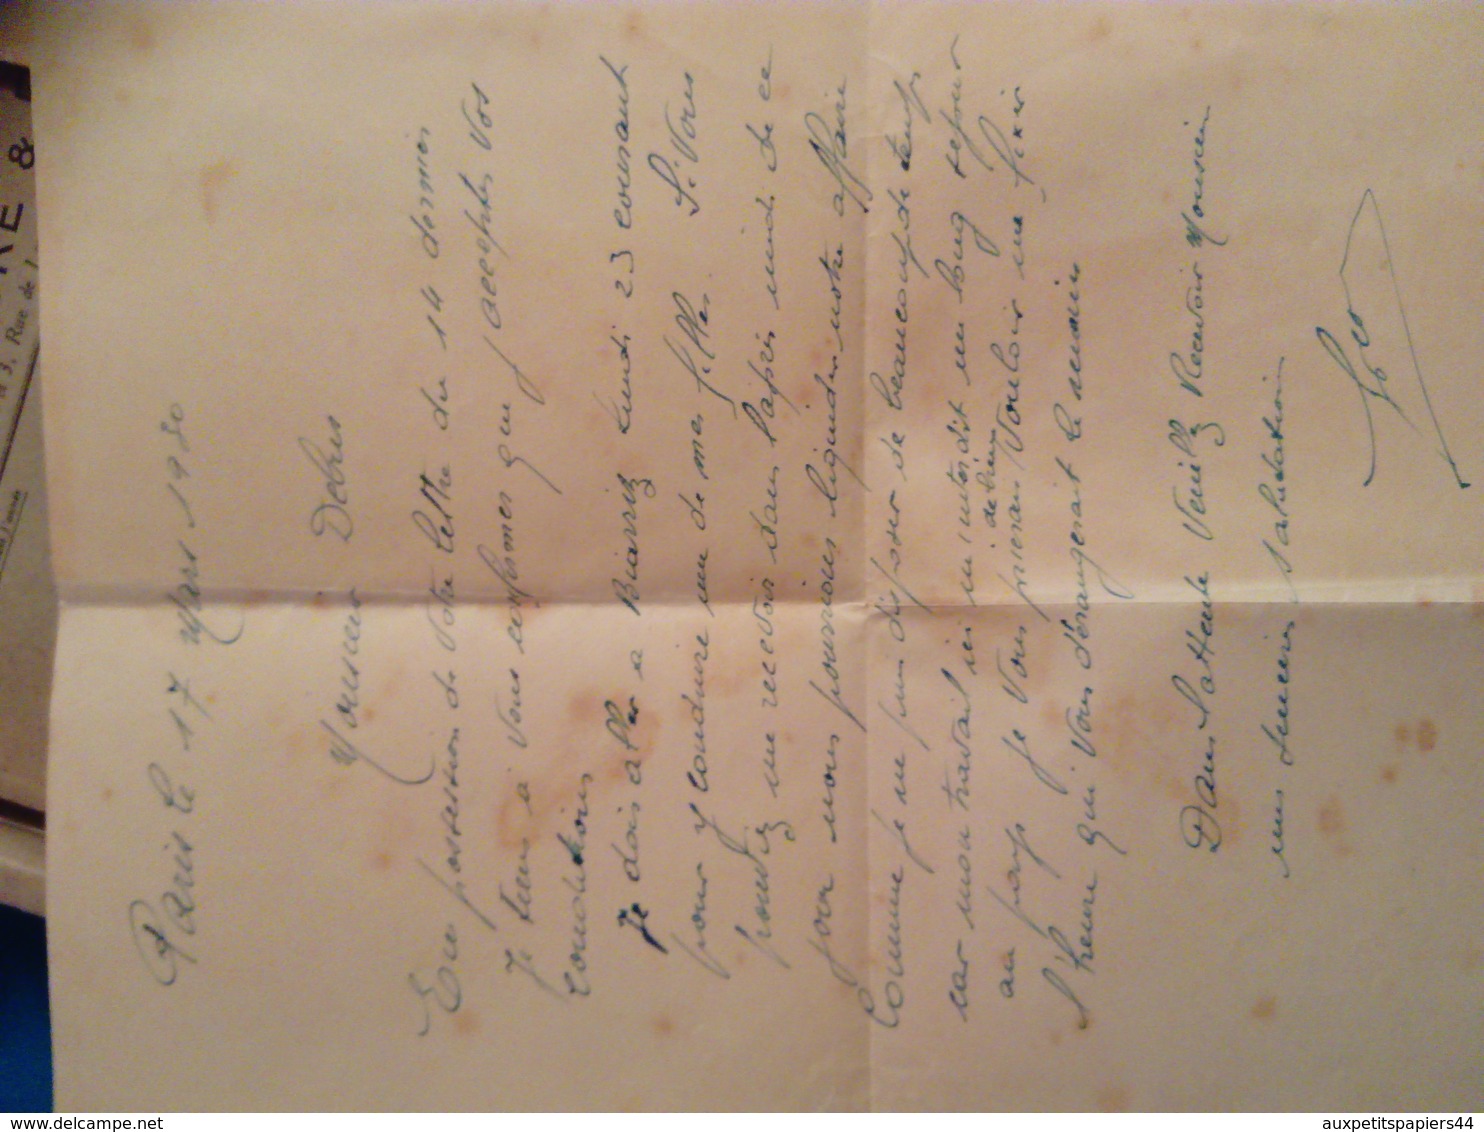 Paris le 17 Mars 1930
Monsieur Debus
En possession de votre lettre du 14 dernier
Je tiens a vous confirmer que j'accepte vos
conditions
Je dois aller a Biarritz lundi 23 courant
pour y conduire une de mes filles. Si vous
pouviez me recevoir dans l'après midi de ce
jour nous pourrions liquider notre affaire
Comme je ne puis disposer de beaucoup de temps
car mon travail ici m'interdit un long séjour
au pays je vous prierais de bien vouloir me fixer
l'heure qui vous dérangerait le moins
Dans l'attente Veuillez Recevoir Monsieur
mes sincères salutations
RE &
3, Rue de
auxpetitspapiers44